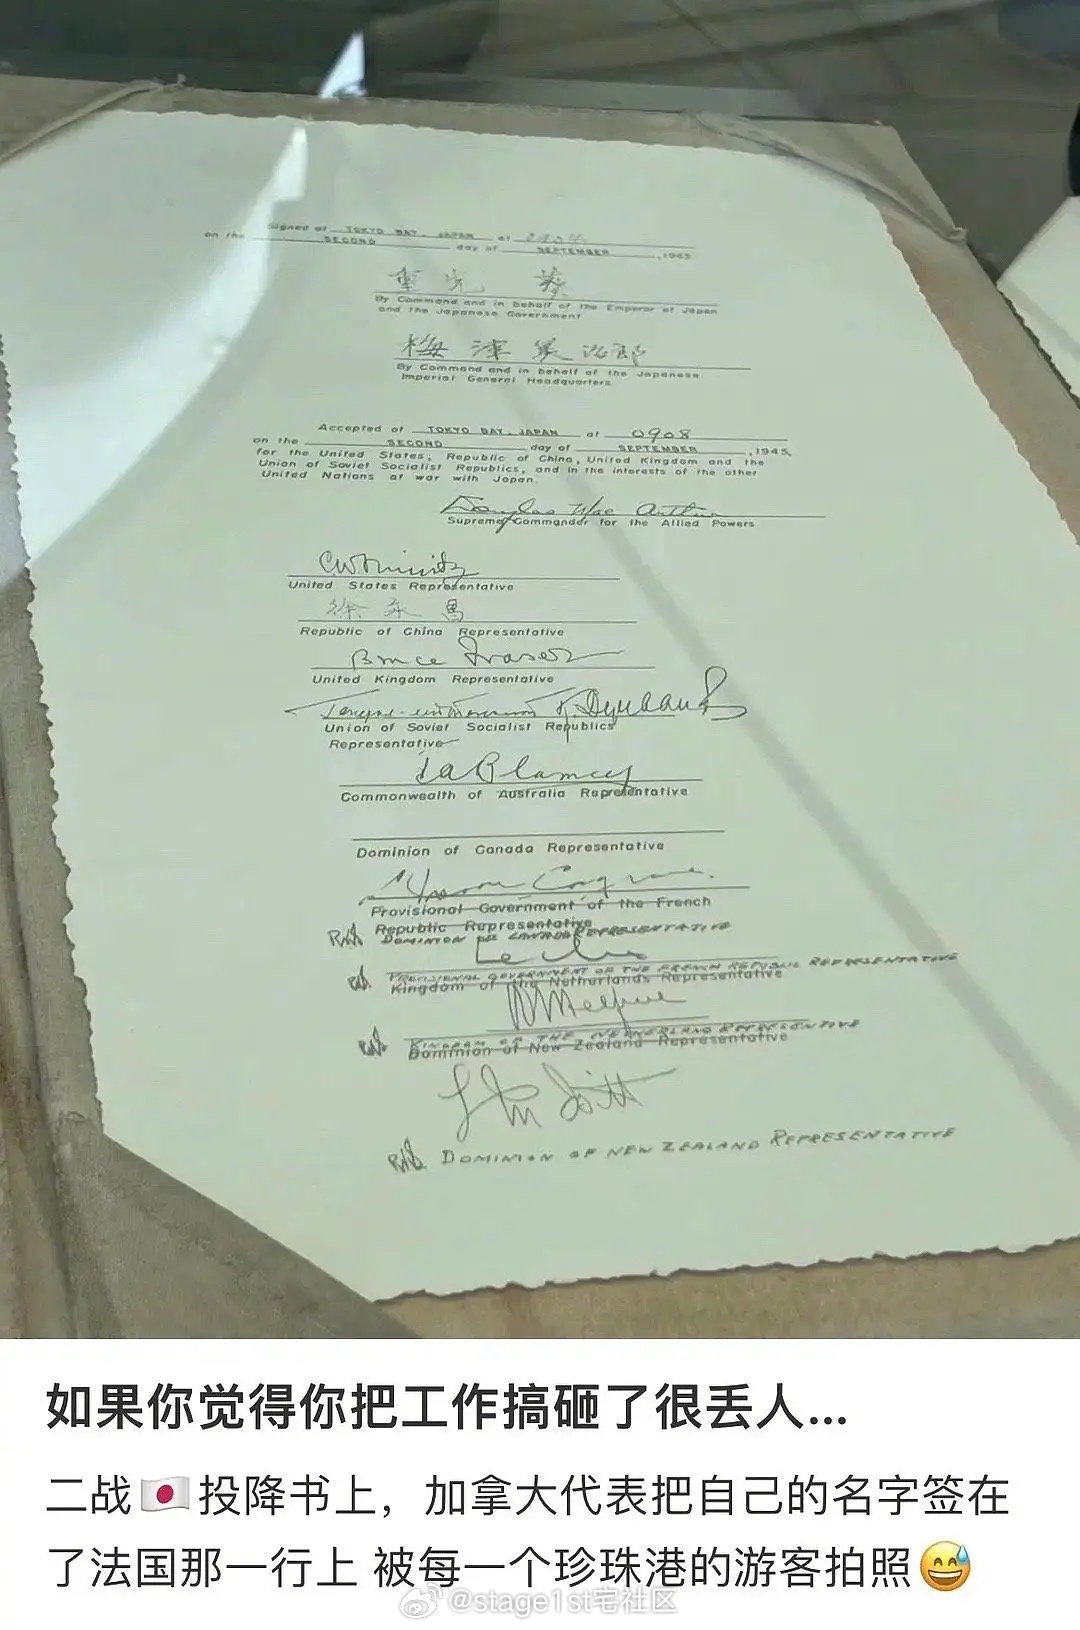 Signed at TOKYO BAY, JAPAN at 0904
on the SECOND day of SEPTEMBER, 1945
重光 葵
By Command and in behalf of the Emperor of Japan
and the Japanese Government
梅津美治郎
By Command and in behalf of the Japanese
Imperial General Headquarters
Accepted at TOKYO BAY, JAPAN at 0908
on the SECOND day of SEPTEMBER, 1945,
for the United States, Republic of China, United Kingdom and the
Union of Soviet Socialist Republics, and in the interests of the other
United Nations at war with Japan.
Douglas MacArthur
Supreme Commander for the Allied Powers
C.W. Nimitz
United States Representative
徐永昌
Republic of China Representative
Bruce Fraser
United Kingdom Representative
Union of Soviet Socialist Republics
Representative
T a Blamey
Commonwealth of Australia Representative
Dominion of Canada Representative
Provisional Government of the French
Republic Representative
DOMINION OF CANADA REPRESENTATIVE
PROVISIONAL GOVERNMENT OF THE FRENCH REPUBLIC REPRESENTATIVE
Kingdom of the Netherlands Representative
KINGDOM OF THE NETHERLAND REPRESENTATIVE
Dominion of New Zealand Representative
DOMINION OF NEW ZEALAND REPRESENTATIVE
如果你觉得你把工作搞砸了很丢人...
二战🇯🇵投降书上，加拿大代表把自己的名字签在
了法国那一行上 被每一个珍珠港的游客拍照😅
@stage1st宅社区